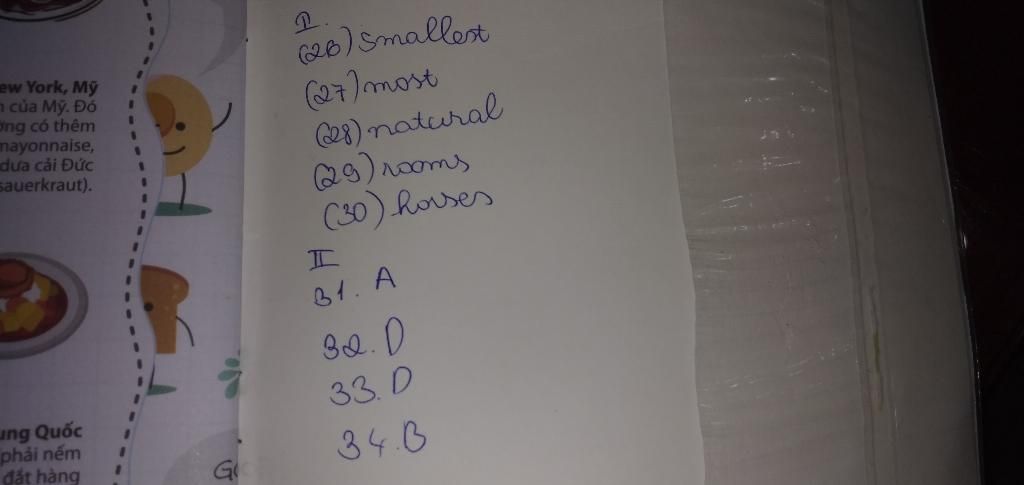 ew York, Mỹ
của Mỹ. Đó
ờng có thêm
mayonnaise,
dưa cải Đức
sauerkraut).
ung Quốc
phải nếm
đắt hàng
II.
(26) smallest
(27) most
(28) natural
(29) rooms
(30) horses
II
31. A
32. D
33. D
34. B